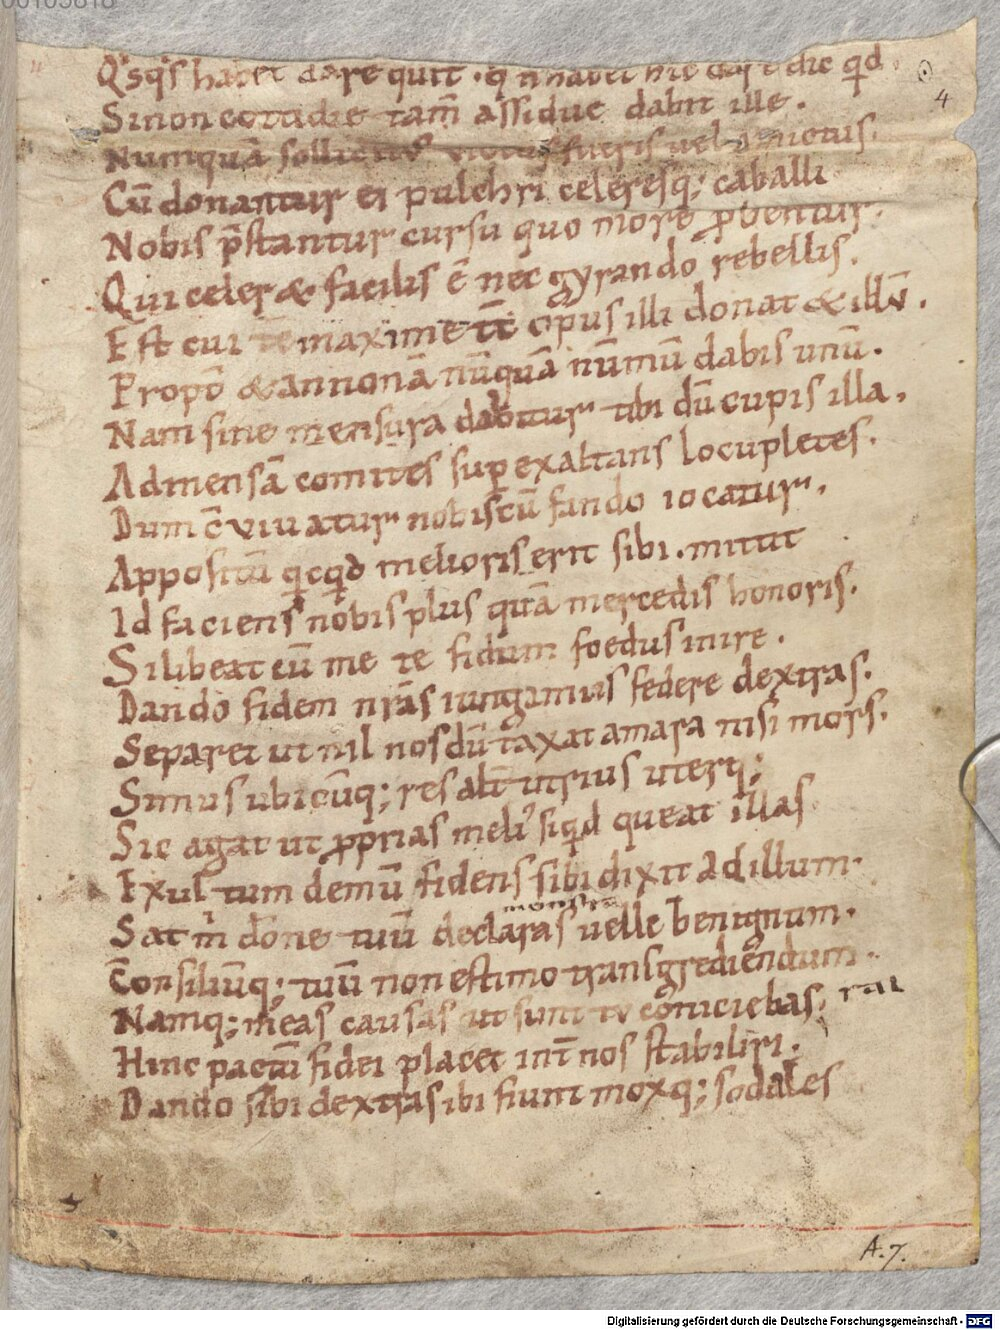 00103818
Qͥsqͥs habet dare quit · q̄ n̄ habet dic qͥd.
4
Si non cottidie tam̄ assidue dabit ille.
Numquā sollicitus uictus fueris uel amictus.
Cū donantur ei pulchri celeresq; caballi
Nobis p̄stantur cursu quo more p̱bentur.
Qui celer & facilis ē nec gyrando rebellis.
Est cui maxime tc̄ opus illi donat & illū.
Propt̄ & annonā nūquā nūmū dabis unū.
Nam sine mensura dabitur tibi dū cupis illa.
Ad mensā comites sup exaltans locupletes.
Dum c̄viuatur nobiscū fando iocatur.
Appositū qͥcqͥd melioris erit sibi. mittit
Id faciens nobis plus quā mercedis honoris.
Si libeat eū me te fidum foedus inire.
Dando fidem nr̄as iungamus federe dextras.
Separet ut nil nos dū taxat amara nisi mors.
Simus ubicūq; res alt̄ utrius uterq;
Sic agat ut p̱prias meliꝰ siqͥd queat illas
Exul tum demū fidens sibi dixit ad illum.
monstra
Sat m̄ dōne tuū declaras uelle benignum.
Consiliūq; tuū non estimo transgrediendum.
Namq; meas causas ut sunt tu coniciebas. rat
Hinc pactū fidei placet int̄ nos stabiliri.
Dando sibi dextras ibi fiunt moxq; sodales
A. 7.
Digitalisierung gefördert durch die Deutsche Forschungsgemeinschaft - DFG